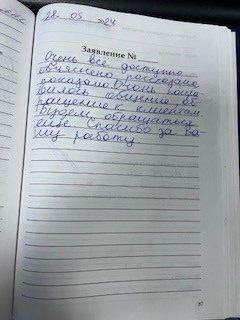 28. 05 2024
Заявление №
Очень все доступно
объяснено, рассказано
показано. Очень понра
вилось общение, об
ращение к клиентам
Будем обращаться
еще. Спасибо за ва
шу работу